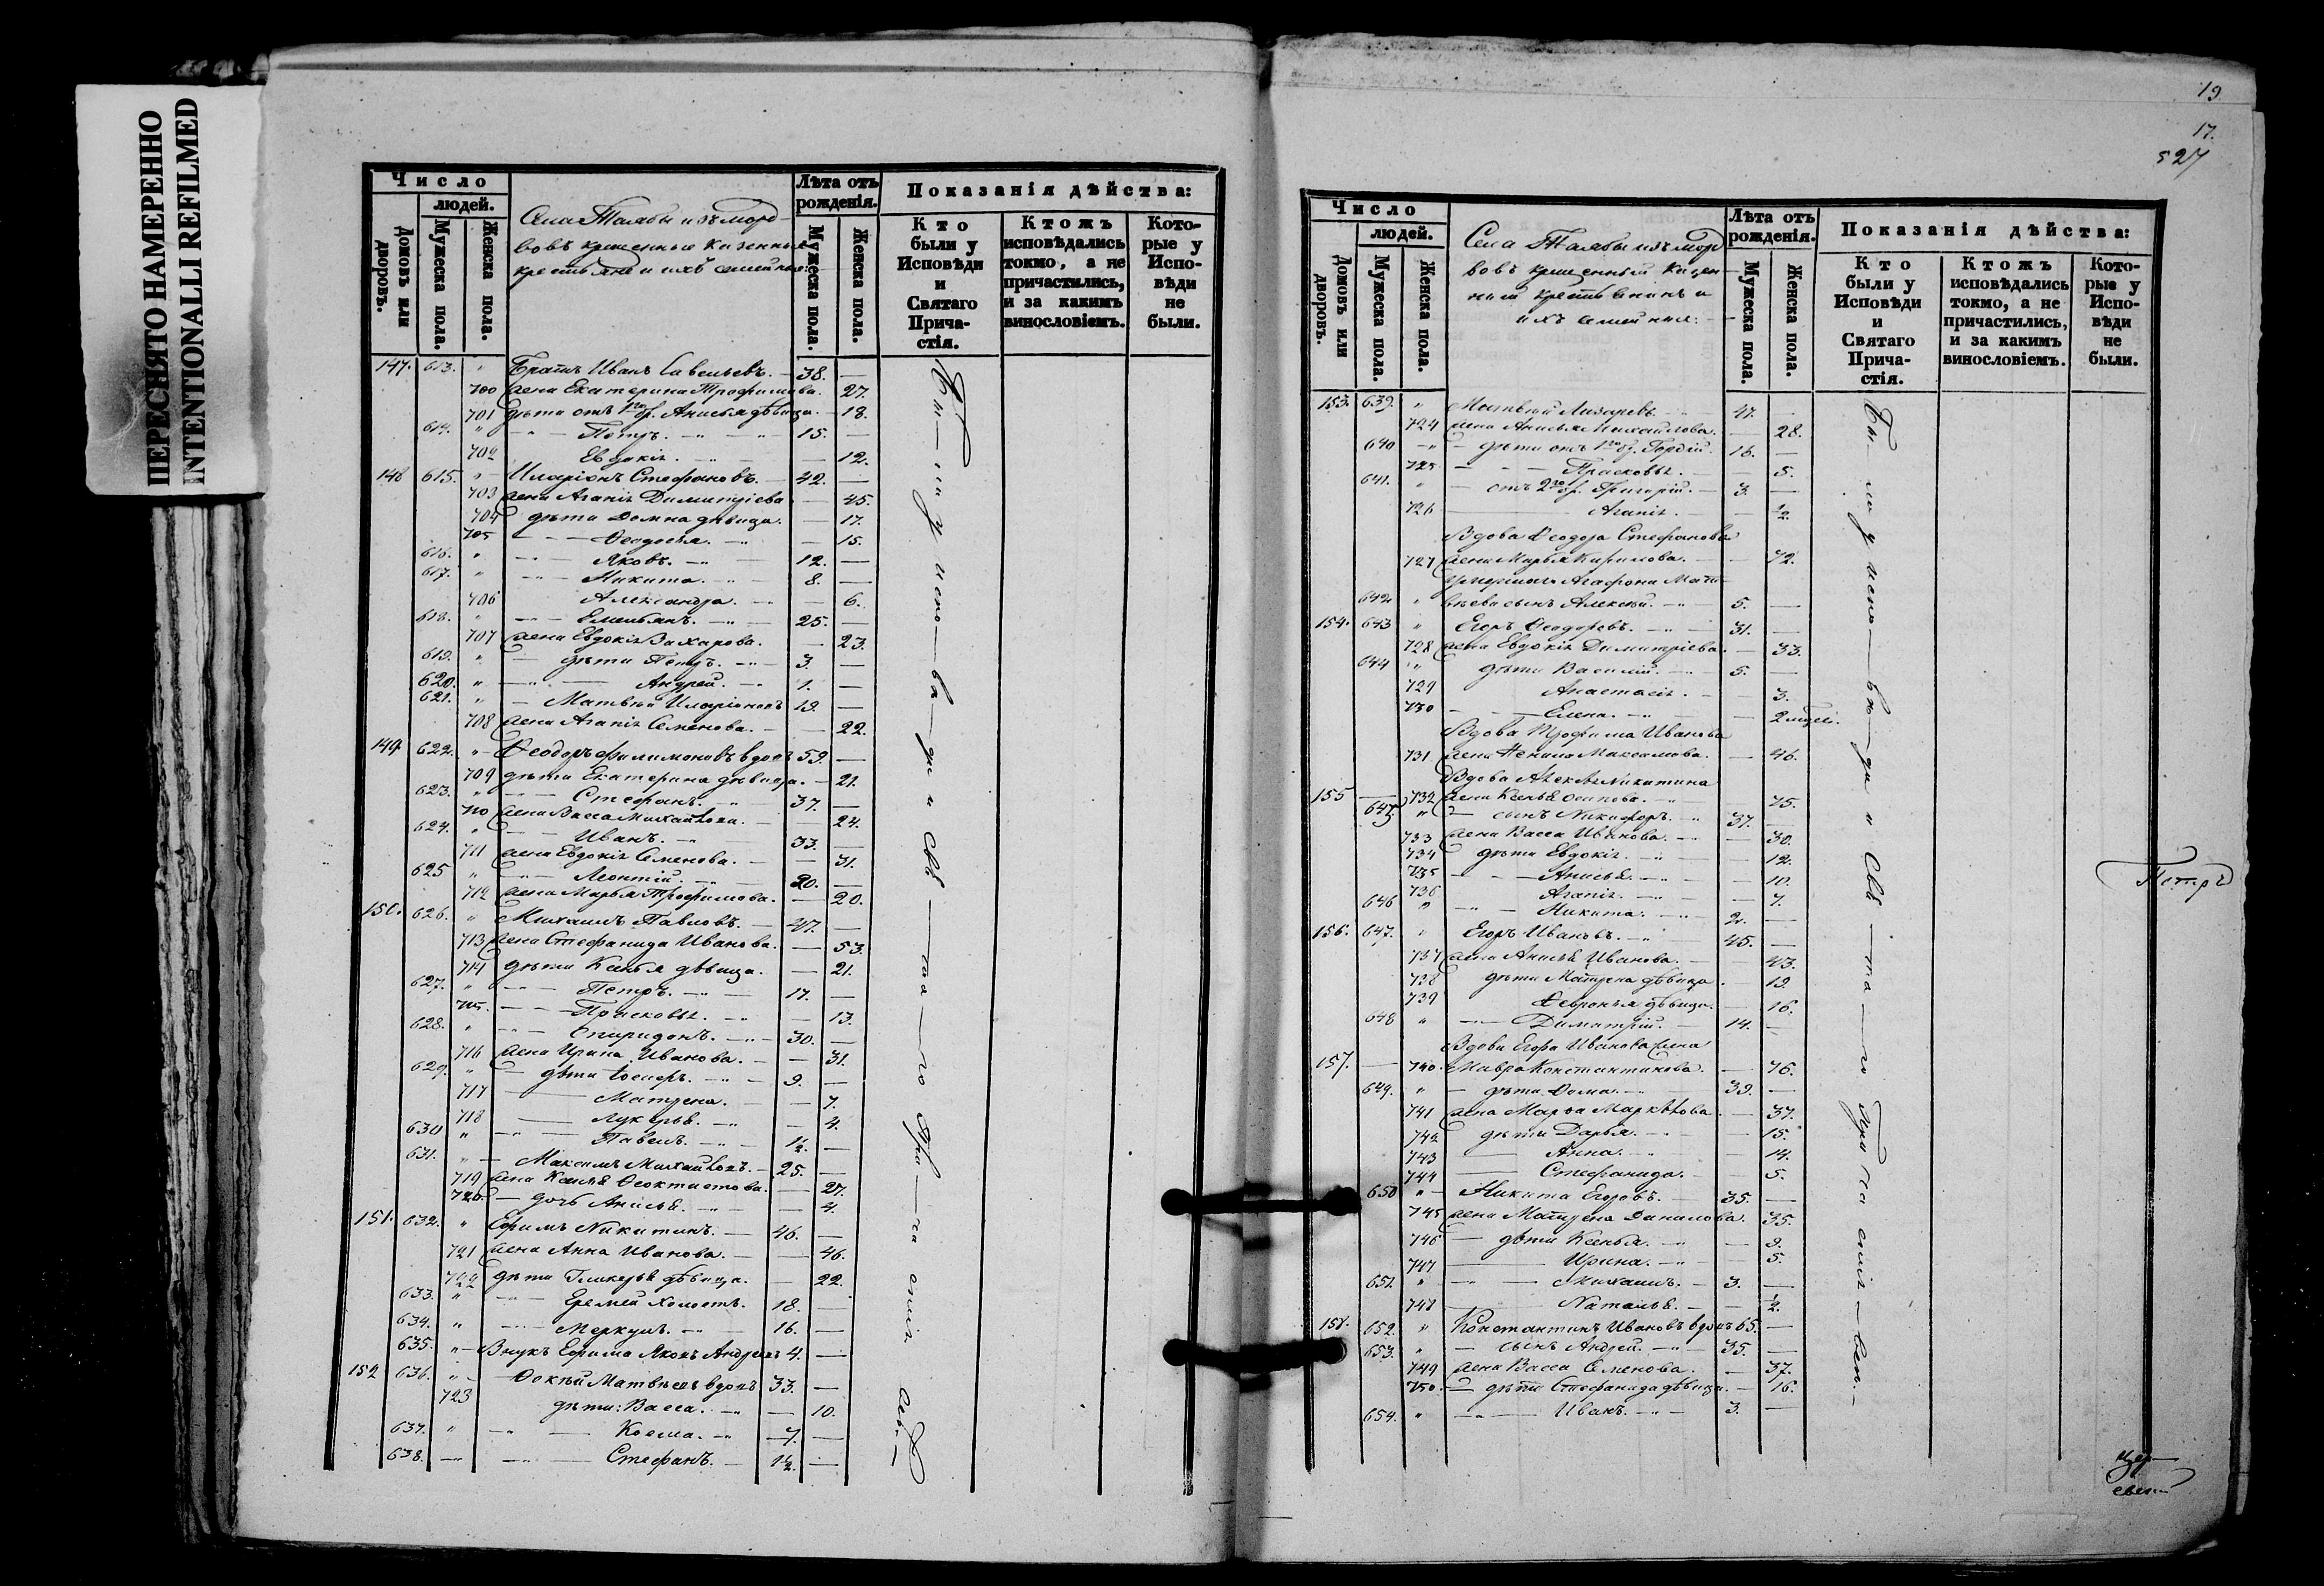 ПЕРЕСНЯТО НАМЕРЕННО
INTENTIONALLI REFILMED
Число
людей.
Домовъ или дворовъ.
Мужеска пола.
Женска пола.
Села Талабы изъ морд-
вовъ крещенные казенные
крестьяне и ихъ семейные:
Лѣта отъ рожденія.
Мужеска пола.
Женска пола.
Показанія дѣйства:
Кто были у Исповѣди и Святаго Прича-стія.
Ктожъ исповѣдались токмо, а не причастились, и за какимъ винословіемъ.
Кото-рые у Испо-вѣди не были.
147. 613. " Братъ Иванъ Савельевъ. 38. —
700 жена Екатерина Трофимова. 27.
701 дѣти отъ 1го бр. Анисья дѣвица. — 18.
614. " Петръ. 15. —
702 Евдокія. — 12.
148 615. " Иларіонъ Стефановъ. 42. —
703 жена Агапія Димитріева. — 45.
704 дѣти Домна дѣвица. — 17.
705 Ѳеодосія. — 15.
616. " Яковъ. 12. —
617. " Никита. 8. —
706 Александра. — 6.
618. " Емельянъ. 25. —
707 жена Евдокія Захарова. — 23.
619. " дѣти Петръ. 3. —
620. " Андрей. 1. —
621. " Матвѣй Иларіоновъ 19. —
708 жена Агапія Семенова. — 22.
149 622. " Ѳеодоръ Филимоновъ вдовъ 59. —
709 дѣти Екатерина дѣвица. — 21.
623. " Стефанъ. 37. —
710 жена Васса Михайлова. — 24.
624. " Иванъ. 33. —
711 жена Евдокія Семенова. — 31.
625 " Леонтій. 20. —
712 жена Марья Трофимова. — 20.
150. 626. " Михаилъ Павловъ. 47. —
713 жена Стефанида Иванова. — 53.
714 дѣти Ксенья дѣвица. — 21.
627. " Петръ. 17. —
715. Прасковья. — 13.
628. " Спиридонъ. 30. —
716 жена Ирина Иванова. — 31.
629. " дѣти Іосифъ. 9. —
717 Матрена. — 7.
718 Лукерья. — 4.
630 " Павелъ. 1½. —
631. " Максимъ Михайловъ. 25. —
719 жена Ксенья Ѳеоктистова. — 27.
720 дочь Анисья. — 4.
151. 632. " Ефимъ Никитинъ. 46. —
721 жена Анна Иванова. — 46.
722 дѣти Гликерья дѣвица. — 22.
633. " Еремей холостъ. 18. —
634. " Меркулъ. 16. —
635. " Внукъ Ефима Яковъ Андреевъ 4. —
152 636. " Ѳокѣй Матвѣевъ вдовъ 33. —
723 дѣти: Васса. — 10.
637. " Косма. 7. —
638. — Стефанъ. 1½. —
Бы-ли у испо-вѣ-ди и Свя-та-го При-ча-стія
19
17.
527
Число
людей.
Домовъ или дворовъ.
Мужеска пола.
Женска пола.
Села Талабы изъ морд
вовъ крещенный казен-
ный крестьянинъ и
ихъ семейные:
Лѣта отъ рожденія.
Мужеска пола.
Женска пола.
Показанія дѣйства:
Кто были у Исповѣди и Святаго Прича-стія.
Ктожъ исповѣдались токмо, а не причастились, и за какимъ винословіемъ.
Кото-рые у Испо-вѣди не были.
153. 639. " Матвѣй Лазаревъ. 47. —
724 жена Анисья Михайлова. — 28.
640 " дѣти отъ 1го бр. Гордѣй. 16. —
725 Прасковья. — 5.
641. " отъ 2го бр. Григорій. 3. —
726 Агапія. — ½.
Вдова Ѳеодора Стефанова
727 жена Марья Кирилова. — 72.
умершаго Агафона Мат-
642 " вѣева сынъ Алексѣй. 5. —
154. 643 " Егоръ Ѳеодоровъ. 31. —
728 жена Евдокія Димитріева. — 33.
644 " дѣти Василій. 5. —
729 Анастасія. — 3.
730 Елена. — 2 мцевъ.
Вдова Трофима Иванова
731 жена Ненила Максимова. — 46.
Вдова Алексѣя Никитина
155 — 732 жена Ксенья Осипова. 75.
645. " сынъ Никифоръ. 37. —
733 жена Васса Иванова. — 30.
734 дѣти Евдокія. — 12.
735 Анисья. — 10.
736 Агапія. — 7.
646 " Никита. 2. —
156. 647. " Егоръ Ивановъ. 45. —
737 жена Анисья Иванова. — 43.
738 дѣти Матрена дѣвица. — 19.
739 Ѳевронья дѣвица. — 16.
648 " Димитрій. 14. —
Вдова Егора Иванова жена
157. — 740. Мавра Константинова. — 76.
649. " дѣти Ѳома. 39. —
741 жена Марѳа Маркѣлова. — 37.
742 дѣти Дарья. — 15.
743 Анна. — 14.
744 Стефанида. — 5.
650 " Никита Егоровъ. 35. —
745 жена Матрена Данилова. 35.
746 дѣти Ксенья. — 9.
747 Ирина. — 5.
651. " Михаилъ. 3. —
748 Наталья. — ½.
158. 652. " Константинъ Ивановъ вдовъ 65. —
653. " сынъ Андрей. 35. —
749 жена Васса Семенова. — 37.
750. дѣти Стефанида дѣвица. — 16.
654. " Иванъ. 3. —
Бы-ли у испо-вѣ-ди и Свя-та-го При-ча-стія
Петръ